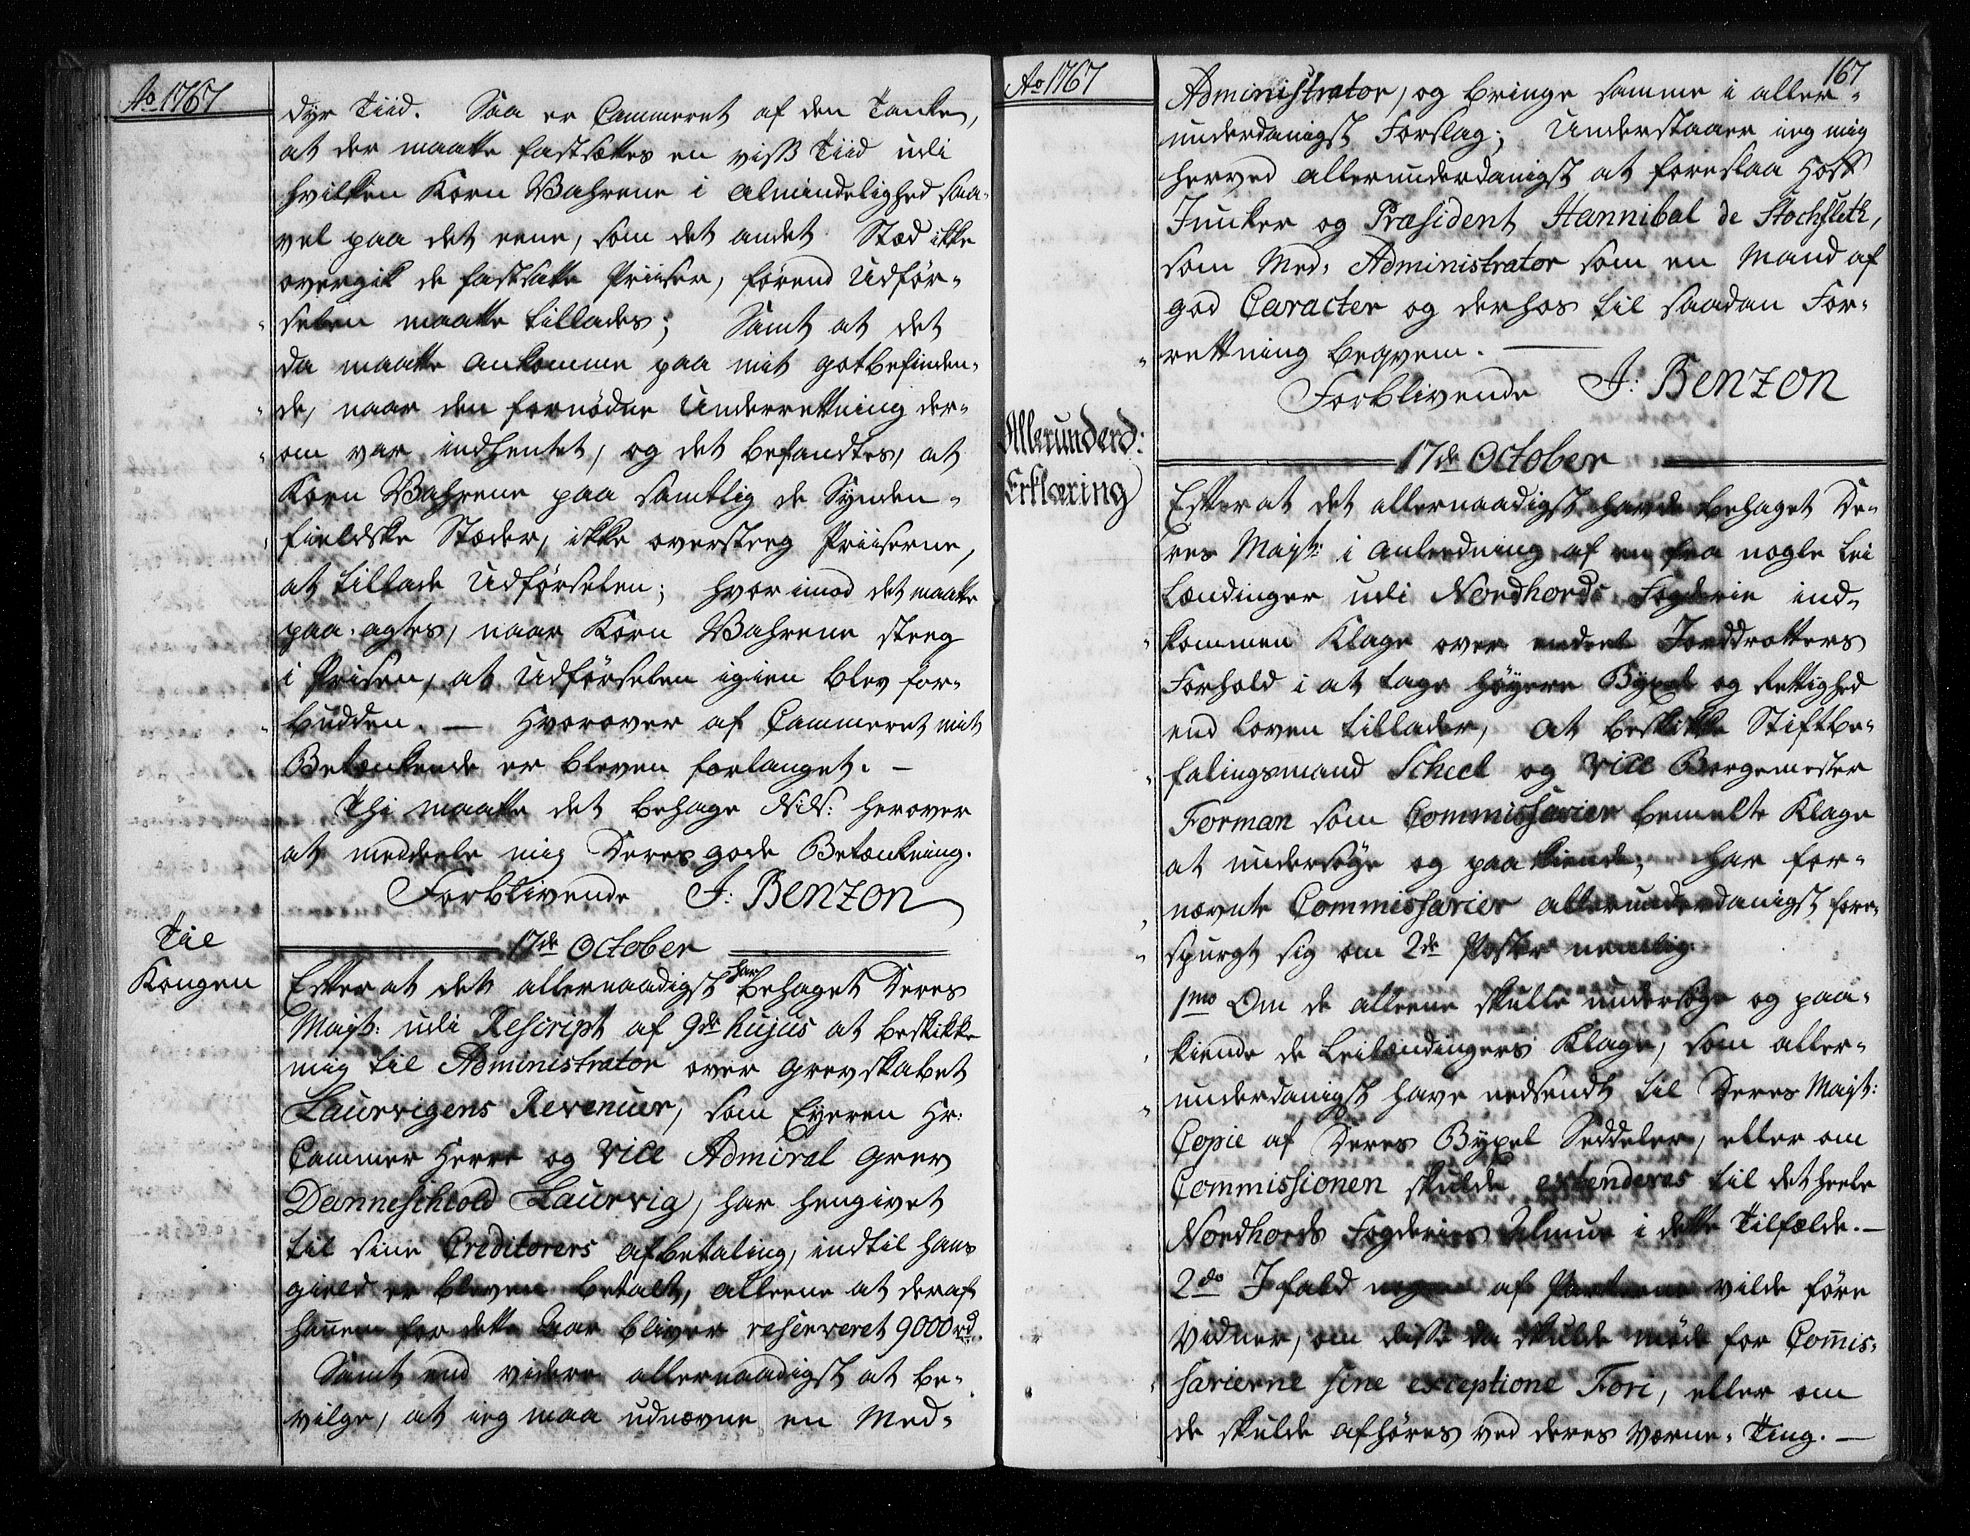 Ao 1767
dyr Tiid. Saa er Cammeret af den Tanke,
at der maatte fastsættes en viss Tiid udi
hvilken Korn Vahrene i Almindelighed saa-
vel paa det eene, som det andet Stæd ikke
overgik de fastsatte Priiser, førend Udfør-
selen maatte tillades; Samt at det
da maatte ankomme paa mit gotbefinden-
de, naar den fornødne Underrettning der-
om var indhentet, og det befandtes, at
Korn Vahrene paa samtlig de Synden-
fieldske Stæder, ikke oversteeg Priiserne,
at tillade Udførselen; hvorimod det maatte
paa-agtes, naar Korn Vahrene steeg
i Prisen, at Udførselen igien blev for-
budden. — Hvorover af Cammeret mit
Betænkende er bleven forlanget. —
Thi maatte det behage N:N: herover
at meddeele mig Deres gode Betænkning.
Forblivende J: Benzon
Til
Kongen
17de October
Efter at det allernaadigst har behaget Deres
Majst: udi Rescript af 9de hujus at beskikke
mig til Administrator over Grevskabet
Laurvigens Revenuer, som Eyeren Hr:
Cammer Herre og Vice Admiral Grev
Danneschiold Laurvig, har hengivet
til sine Creditorers afbetaling, indtil hans
gield er bleven betalt, alleene at deraf
hannem for dette Aar bliver reserveret 9000 rd.
Samt end videre allernaadigst at be-
vilge, at ieg maa udnævne en Med-
Ao 1767
167
Administrator, og bringe samme i aller-
underdanigst Forslag; Understaaer ieg mig
herved allerunderdanigst at foreslaa Hoff
Juncker og Præsident Hannibal de Stochfleth,
som Med-Administrator som en Mand af
god Caracter og derhos til saadan For-
rettning beqvem. —
Forblivende J: Benzon
Allerunderd:
Erklæring
17de October
Efter at det allernaadigst havde behaget De-
res Majst: i Anleedning af en fra nogle Lei
Lændinger udi Nordhords Fogderie ind-
kommen Klage over endeel Jorddrotters
Forhold i at tage høyere Bygsel og Rettighed
end Loven tillader, at beskikke Stiftbe-
falingsmand Scheel og Vice Borgemester
Forman som Commissarier bemelte Klage
at undersøge og paakiende; har for-
nævnte Commissarier allerunderdanigst fore-
spurgt sig om 2de Poster nemlig
1mo Om de alleene skulle undersøge og paa-
kiende de Leilændingers Klage, som aller-
underdanigst have nedsendt til Deres Majst:
Copie af Deres Bygsel Seddeler, eller om
Commissionen skulde extenderes til det heele
Nordhords Fogderies Almue i dette Tilfælde. —
2do I fald nogen af Parterne vilde føre
Vidner, om disse da skulde møde for Commis-
sarierne sine exceptione Fori, eller om
de skulde afhøres ved deres Værne-Ting. —